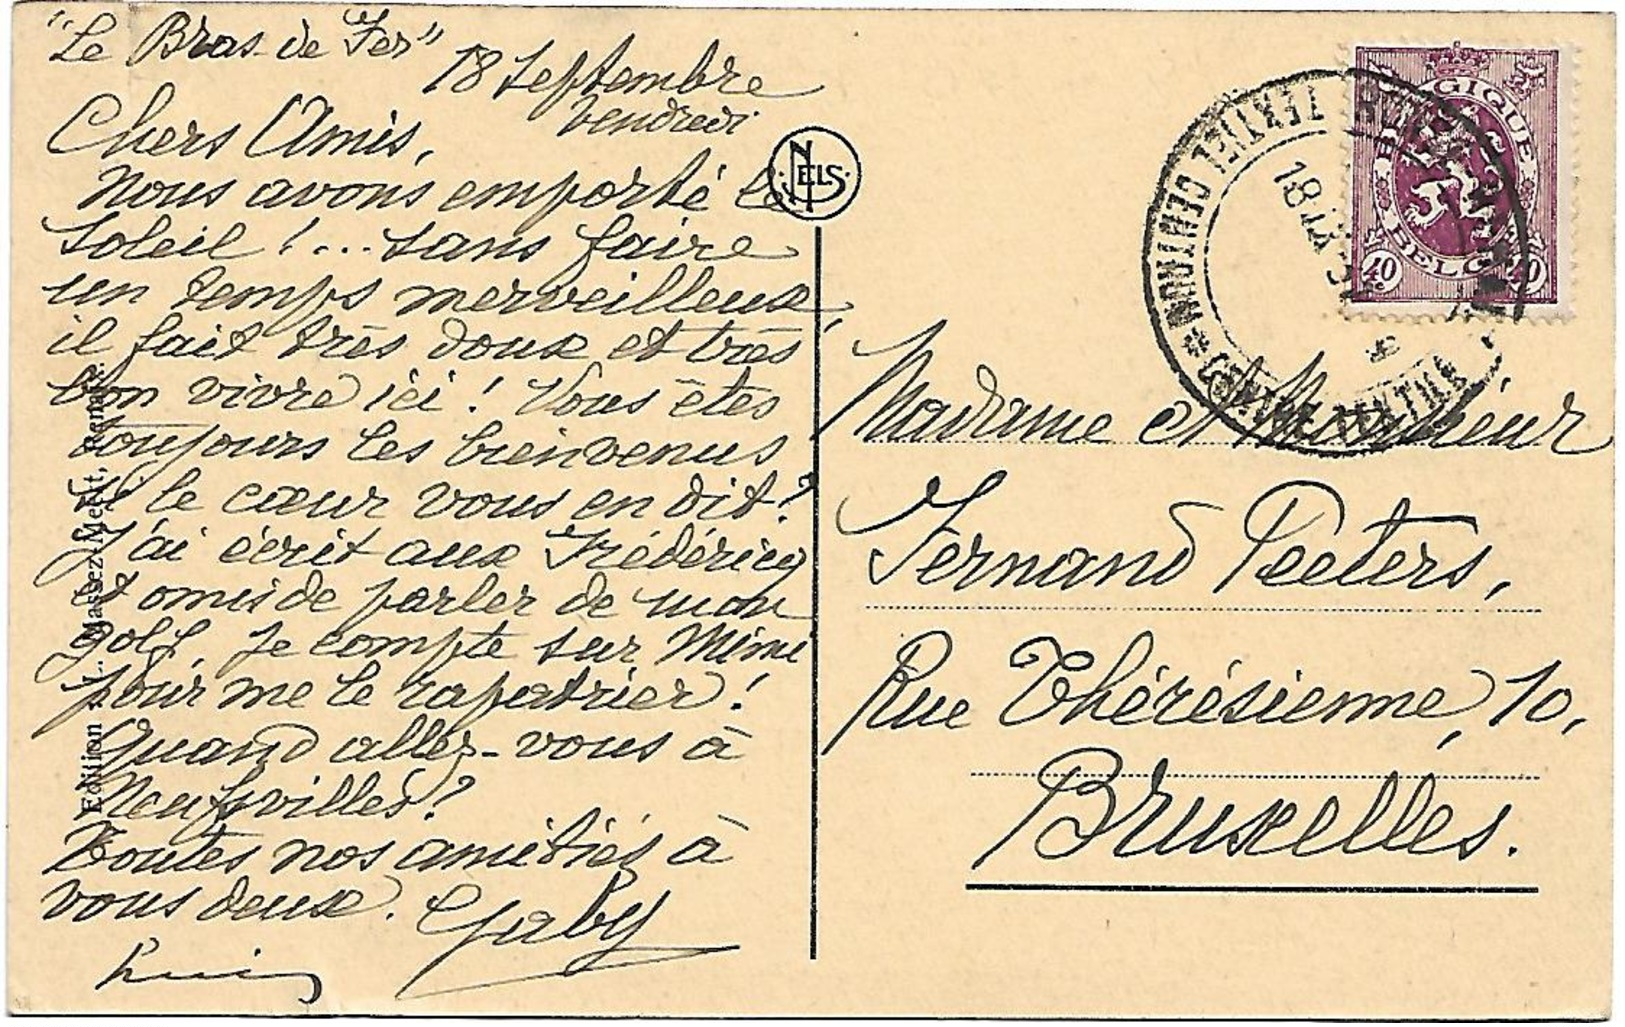 "Le Bras-de Fer"
18 Septembre
Vendredi
Chers Amis,
Nous avons emporté le
soleil !... sans faire
un temps merveilleux,
il fait très doux et très
bon vivre ici ! Vous êtes
toujours les bienvenus
si le cœur vous en dit ?
J'ai écrit aux Frédéricq
et omis de parler de mon
golf. Je compte sur Mimi
pour me le rapatrier !
Quand allez-vous à
Neufvilles ?
Toutes nos amitiés à
vous deux. Gaby
NELS
Edition L. Massez-Metit,
BELGIQUE
BELGIE
40 40
TEXTIEL CENTRUM
18 IX
Madame et Monsieur
Fernand Peeters,
Rue Thérésienne, 10,
Bruxelles.